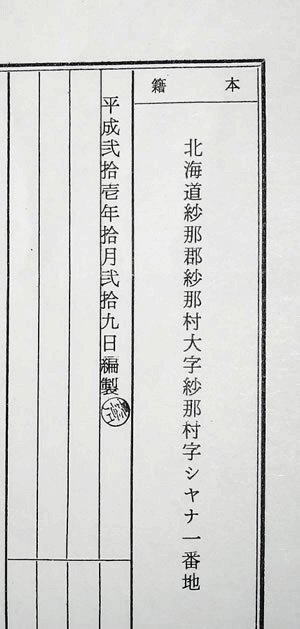 本籍
北海道紗那郡紗那村大字紗那村字シヤナ一番地
平成弐拾壱年拾月弐拾九日編製